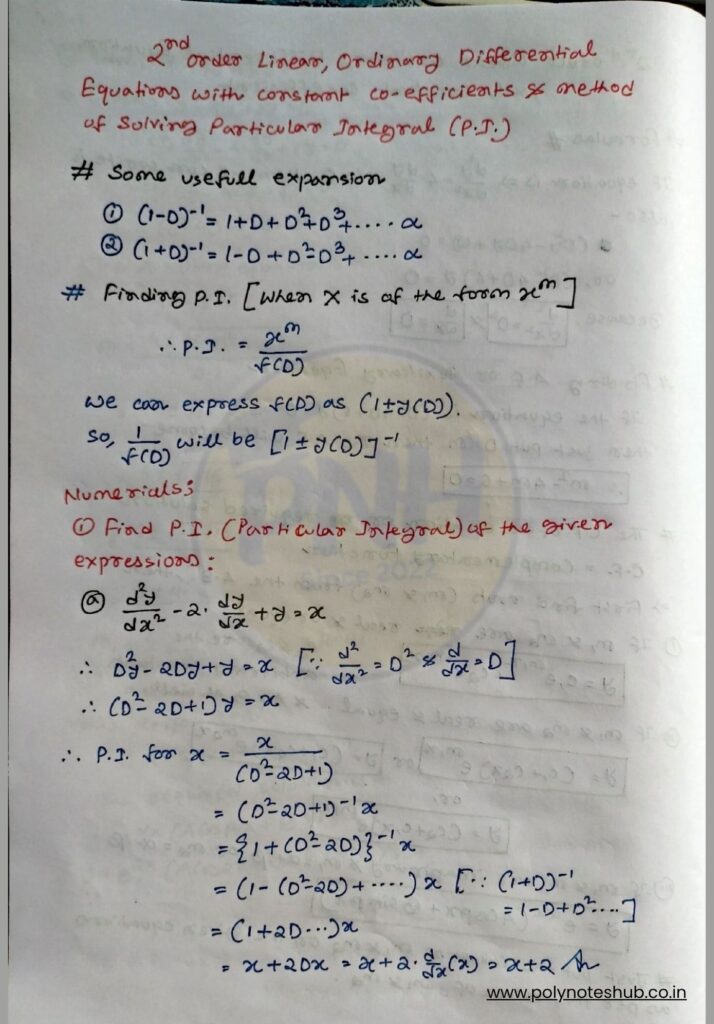 2nd order Linear, Ordinary Differential
Equations with constant co-efficients & method
of Solving Particular Integral (P.I.)
# Some usefull expansion
① (1-D)⁻¹ = 1+D+D²+D³+.... α
② (1+D)⁻¹ = 1-D+D²-D³+ .... α
# Finding P.I. [When X is of the form xᵐ]
∴ P.I. = xᵐ/f(D)
We can express f(D) as (1±y(D)).
So, 1/f(D) will be [1±y(D)]⁻¹
Numericals:
① Find P.I. (Particular Integral) of the given
expressions:
ⓐ d²y/dx² - 2. dy/dx + y = x
∴ D²y - 2Dy + y = x [∵ d²/dx² = D² & d/dx = D]
∴ (D²-2D+1)y = x
∴ P.I. for x = x/(D²-2D+1)
= (D²-2D+1)⁻¹ x
= {1+(D²-2D)}⁻¹ x
= (1-(D²-2D)+.....) x [∵ (1+D)⁻¹
= 1-D+D²....]
= (1+2D...)x
= x+2Dx = x+2. d/dx (x) = x+2 An
PNH
Since 2022
www.polynoteshub.co.in